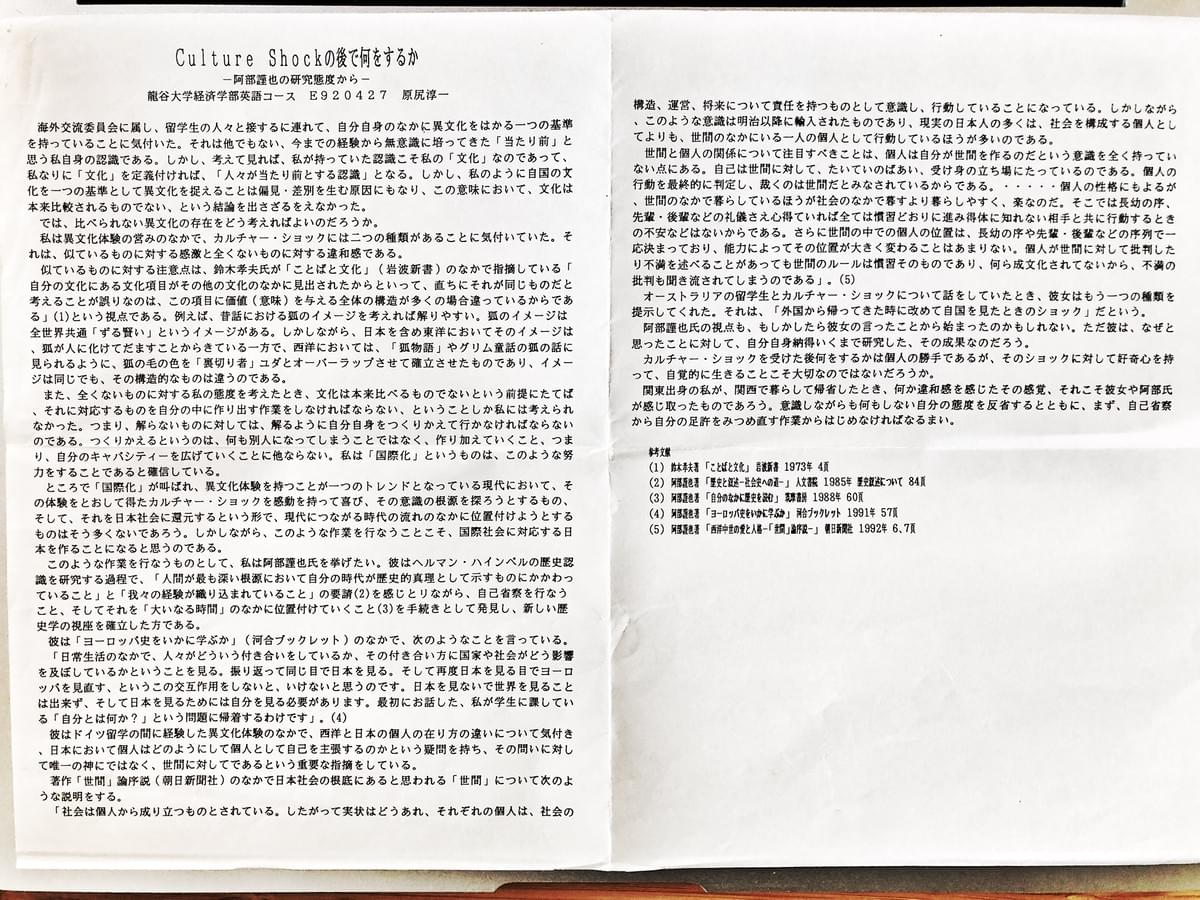 Culture Shockの後で何をするか
－阿部謹也の研究態度から－
龍谷大学経済学部英語コース　Ｅ９２０４２７　原尻淳一
海外交流委員会に属し、留学生の人々と接するに連れて、自分自身のなかに異文化をはかる一つの基準
を持っていることに気付いた。それは他でもない、今までの経験から無意識に培ってきた「当たり前」と
思う私自身の認識である。しかし、考えて見れば、私が持っていた認識こそ私の「文化」なのであって、
私なりに「文化」を定義付ければ、「人々が当たり前とする認識」となる。しかし、私のように自国の文
化を一つの基準として異文化を捉えることは偏見・差別を生む原因にもなり、この意味において、文化は
本来比較されるものでない、という結論を出さざるをえなかった。
では、比べられない異文化の存在をどう考えればよいのだろうか。
私は異文化体験の営みのなかで、カルチャー・ショックには二つの種類があることに気付いていた。そ
れは、似ているものに対する感激と全くないものに対する違和感である。
似ているものに対する注意点は、鈴木孝夫氏が「ことばと文化」（岩波新書）のなかで指摘している「
自分の文化にある文化項目がその他の文化のなかに見出されたからといって、直ちにそれが同じものだと
考えることが誤りなのは、この項目に価値（意味）を与える全体の構造が多くの場合違っているからであ
る」(1)という視点である。例えば、昔話における狐のイメージを考えれば解りやすい。狐のイメージは
全世界共通「ずる賢い」というイメージがある。しかしながら、日本を含め東洋においてそのイメージは
、狐が人に化けてだますことからきている一方で、西洋においては、「狐物語」やグリム童話の狐の話に
見られるように、狐の毛の色を「裏切り者」ユダとオーバーラップさせて確立させたものであり、イメー
ジは同じでも、その構造的なものは違うのである。
また、全くないものに対する私の態度を考えたとき、文化は本来比べるものでないという前提にたてば
、それに対応するものを自分の中に作り出す作業をしなければならない、ということしか私には考えられ
なかった。つまり、解らないものに対しては、解るように自分自身をつくりかえて行かなければならない
のである。つくりかえるというのは、何も別人になってしまうことではなく、作り加えていくこと、つま
り、自分のキャパシティーを広げていくことに他ならない。私は「国際化」というものは、このような努
力をすることであると確信している。
ところで「国際化」が叫ばれ、異文化体験を持つことが一つのトレンドとなっている現代において、そ
の体験をとおして得たカルチャー・ショックを感動を持って喜び、その意識の根源を探ろうとするもの、
そして、それを日本社会に還元するという形で、現代につながる時代の流れのなかに位置付けようとする
ものはそう多くないであろう。しかしながら、このような作業を行なうことこそ、国際社会に対応する日
本を作ることになると思うのである。
このような作業を行なうものとして、私は阿部謹也氏を挙げたい。彼はヘルマン・ハインペルの歴史認
識を研究する過程で、「人間が最も深い根源において自分の時代が歴史的真理として示すものにかかわっ
ていること」と「我々の経験が織り込まれていること」の要請(2)を感じとりながら、自己省察を行なう
こと、そしてそれを「大いなる時間」のなかに位置付けていくこと(3)を手続きとして発見し、新しい歴
史学の視座を確立した方である。
彼は「ヨーロッパ史をいかに学ぶか」（河合ブックレット）のなかで、次のようなことを言っている。
「日常生活のなかで、人々がどういう付き合いをしているか、その付き合い方に国家や社会がどう影響
を及ぼしているかということを見る。振り返って同じ目で日本を見る。そして再度日本を見る目でヨーロ
ッパを見直す、というこの交互作用をしないと、いけないと思うのです。日本を見ないで世界を見ること
は出来ず、そして日本を見るためには自分を見る必要があります。最初にお話した、私が学生に課してい
る「自分とは何か？」という問題に帰着するわけです」。(4)
彼はドイツ留学の間に経験した異文化体験のなかで、西洋と日本の個人の在り方の違いについて気付き
、日本において個人はどのようにして個人として自己を主張するのかという疑問を持ち、その問いに対し
て唯一の神にではなく、世間に対してであるという重要な指摘をしている。
著作「世間」論序説（朝日新聞社）のなかで日本社会の根底にあると思われる「世間」について次のよ
うな説明をする。
「社会は個人から成り立つものとされている。したがって実状はどうあれ、それぞれの個人は、社会の
構造、運営、将来について責任を持つものとして意識し、行動していることになっている。しかしながら
、このような意識は明治以降に輸入されたものであり、現実の日本人の多くは、社会を構成する個人とし
てよりも、世間のなかにいる一人の個人として行動しているほうが多いのである。
世間と個人の関係について注目すべきことは、個人は自分が世間を作るのだという意識を全く持ってい
ない点にある。自己は世間に対して、たいていのばあい、受け身の立ち場にたっているのである。個人の
行動を最終的に判定し、裁くのは世間だとみなされているからである。・・・・・個人の性格にもよるが
、世間のなかで暮らしているほうが社会のなかで暮すより暮らしやすく、楽なのだ。そこでは長幼の序、
先輩・後輩などの礼儀さえ心得ていれば全ては慣習どおりに進み得体に知れない相手と共に行動するとき
の不安などはないからである。さらに世間の中での個人の位置は、長幼の序や先輩・後輩などの序列で一
応決まっており、能力によってその位置が大きく変わることはあまりない。個人が世間に対して批判した
り不満を述べることがあっても世間のルールは慣習そのものであり、何ら成文化されてないから、不満の
批判も聞き流されてしまうのである」。(5)
オーストラリアの留学生とカルチャー・ショックについて話をしていたとき、彼女はもう一つの種類を
提示してくれた。それは、「外国から帰ってきた時に改めて自国を見たときのショック」だという。
阿部謹也氏の視点も、もしかしたら彼女の言ったことから始まったのかもしれない。ただ彼は、なぜと
思ったことに対して、自分自身納得いくまで研究した、その成果なのだろう。
カルチャー・ショックを受けた後何をするかは個人の勝手であるが、そのショックに対して好奇心を持
って、自覚的に生きることこそ大切なのではないだろうか。
関東出身の私が、関西で暮らして帰省したとき、何か違和感を感じたその感覚、それこそ彼女や阿部氏
が感じ取ったものであろう。意識しながらも何もしない自分の態度を反省するとともに、まず、自己省察
から自分の足許をみつめ直す作業からはじめなければなるまい。
参考文献
(1) 鈴木孝夫著 「ことばと文化」 岩波新書 1973年 4頁
(2) 阿部謹也著 「歴史と叙述－社会史への道－」 人文書院 1985年 歴史叙述について 84頁
(3) 阿部謹也著 「自分のなかに歴史を読む」 筑摩書房 1988年 60頁
(4) 阿部謹也著 「ヨーロッパ史をいかに学ぶか」 河合ブックレット 1991年 57頁
(5) 阿部謹也著 「西洋中世の愛と人格－「世間」論序説－」 朝日新聞社 1992年 6、7頁